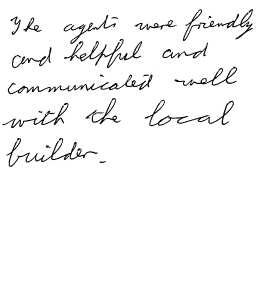 The agents were friendly
and helpful and
communicated well
with the local
builder.